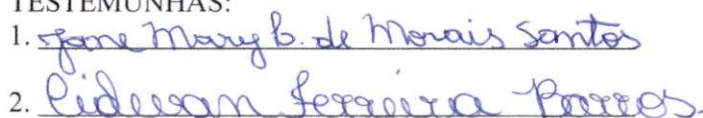 TESTEMUNHAS:
1. Jane Mary B. de Morais Santos
2. Cidevan Ferreira Barros